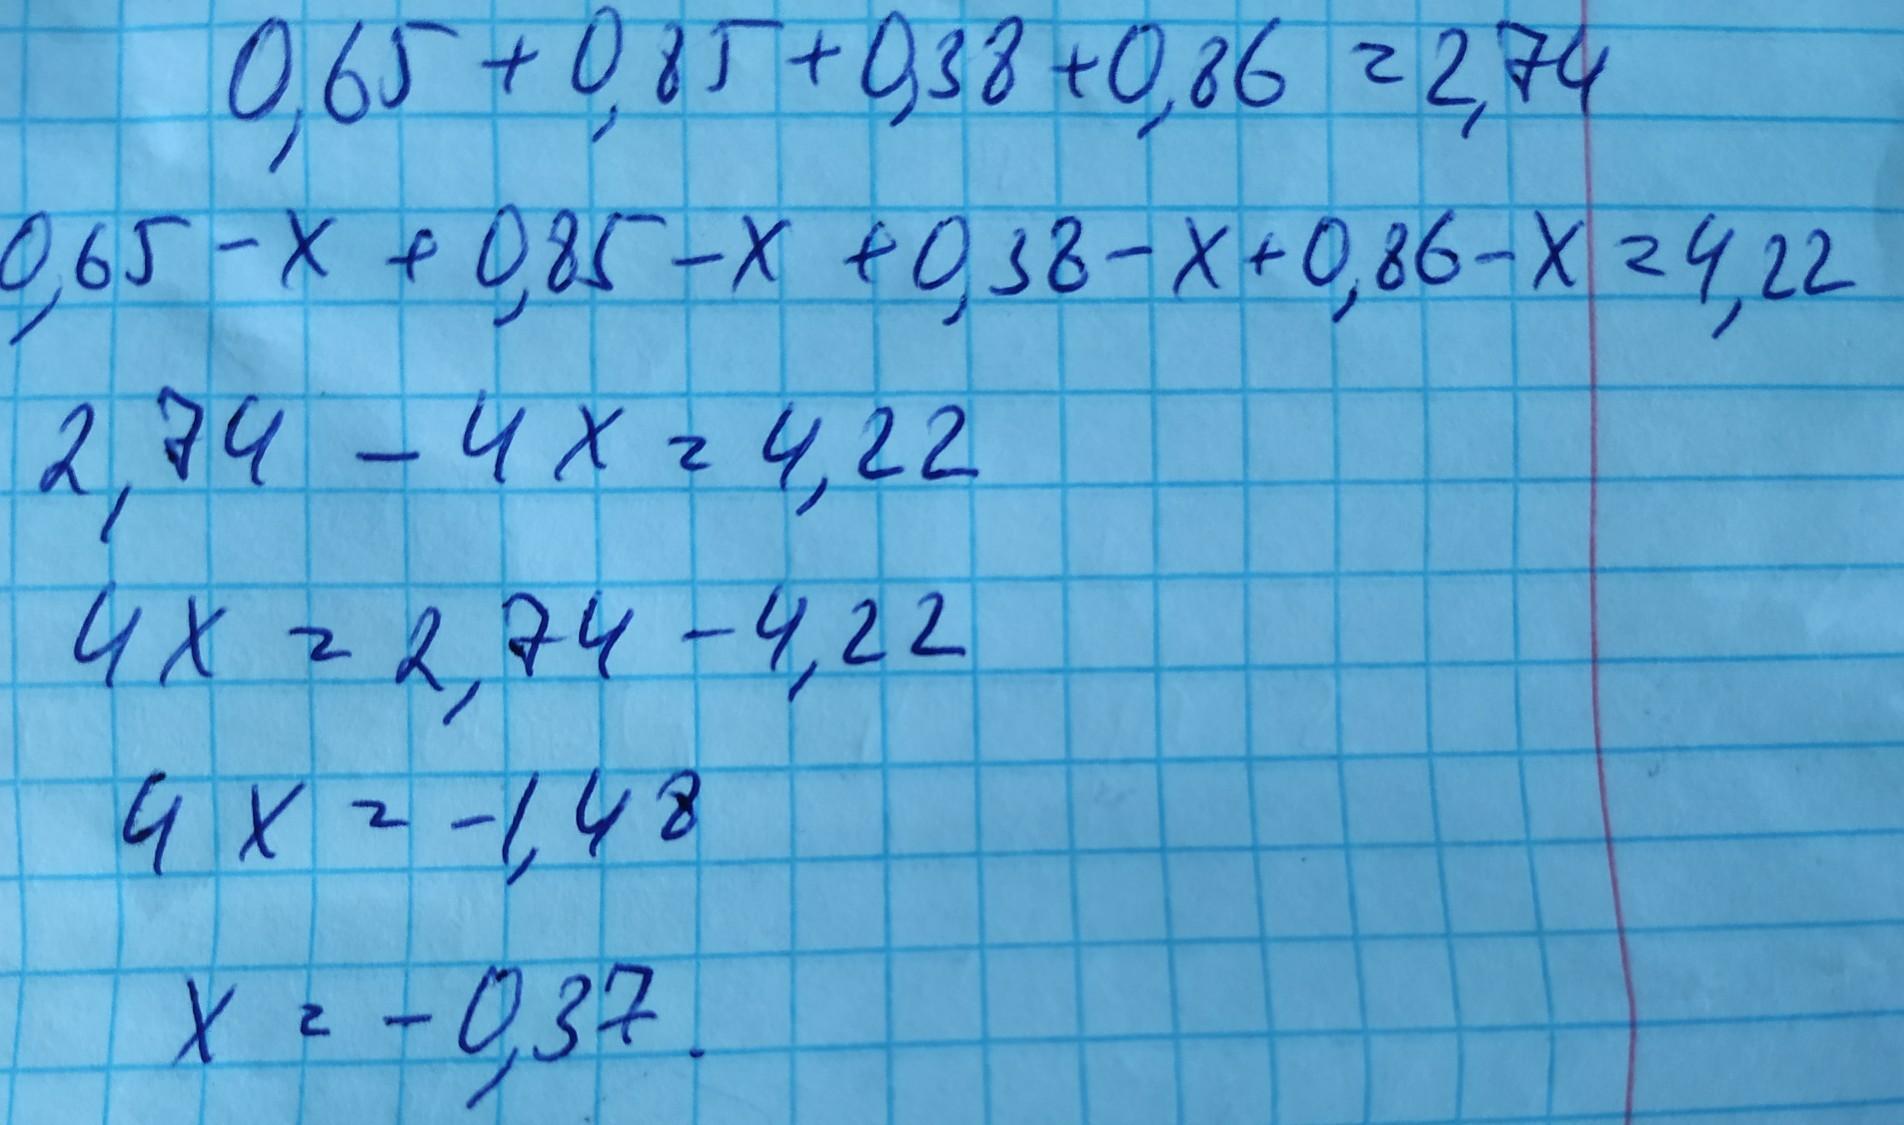 0,65 + 0,85 + 0,38 + 0,86 = 2,74
0,65 - x + 0,85 - x + 0,38 - x + 0,86 - x = 4,22
2,74 - 4x = 4,22
4x = 2,74 - 4,22
4x = -1,48
x = -0,37.